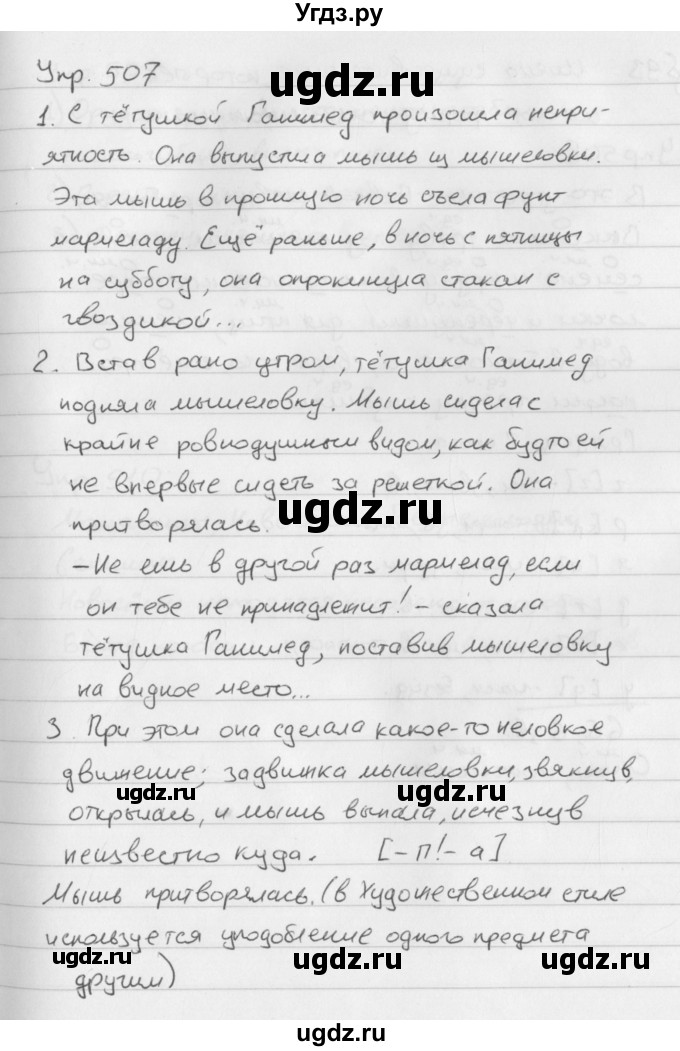 Угдз.ру
Упр. 507
ugdz.ru
1. С тётушкой Ганимед произошла непри-
ятность. Она выпустила мышь из мышеловки.
ugdz.ru
Эта мышь в прошлую ночь съела фунт
мармеладу. Ещё раньше, в ночь с пятницы
на субботу, она опрокинула стакан с
ugdz.ru
гвоздикой...
2. Встав рано утром, тётушка Ганимед
ugdz.ru
подняла мышеловку. Мышь сидела с
крайне равнодушным видом, как будто ей
не впервые сидеть за решеткой. Она
ugdz.ru
притворялась.
– Не ешь в другой раз мармелад, если
он тебе не принадлежит! – сказала
тётушка Ганимед, поставив мышеловку
на видное место...
3. При этом она сделала какое-то неловкое
движение; задвижка мышеловки, звякнув,
ugdz.ru ugdz.ru
открылась, и мышь выпала, исчезнув
неизвестно куда. [– п! – а]
Мышь притворялась. (в художественном стиле
используется уподобление одного предмета
ugdz.ru ugdz.ru
другим)
ugdz.ru